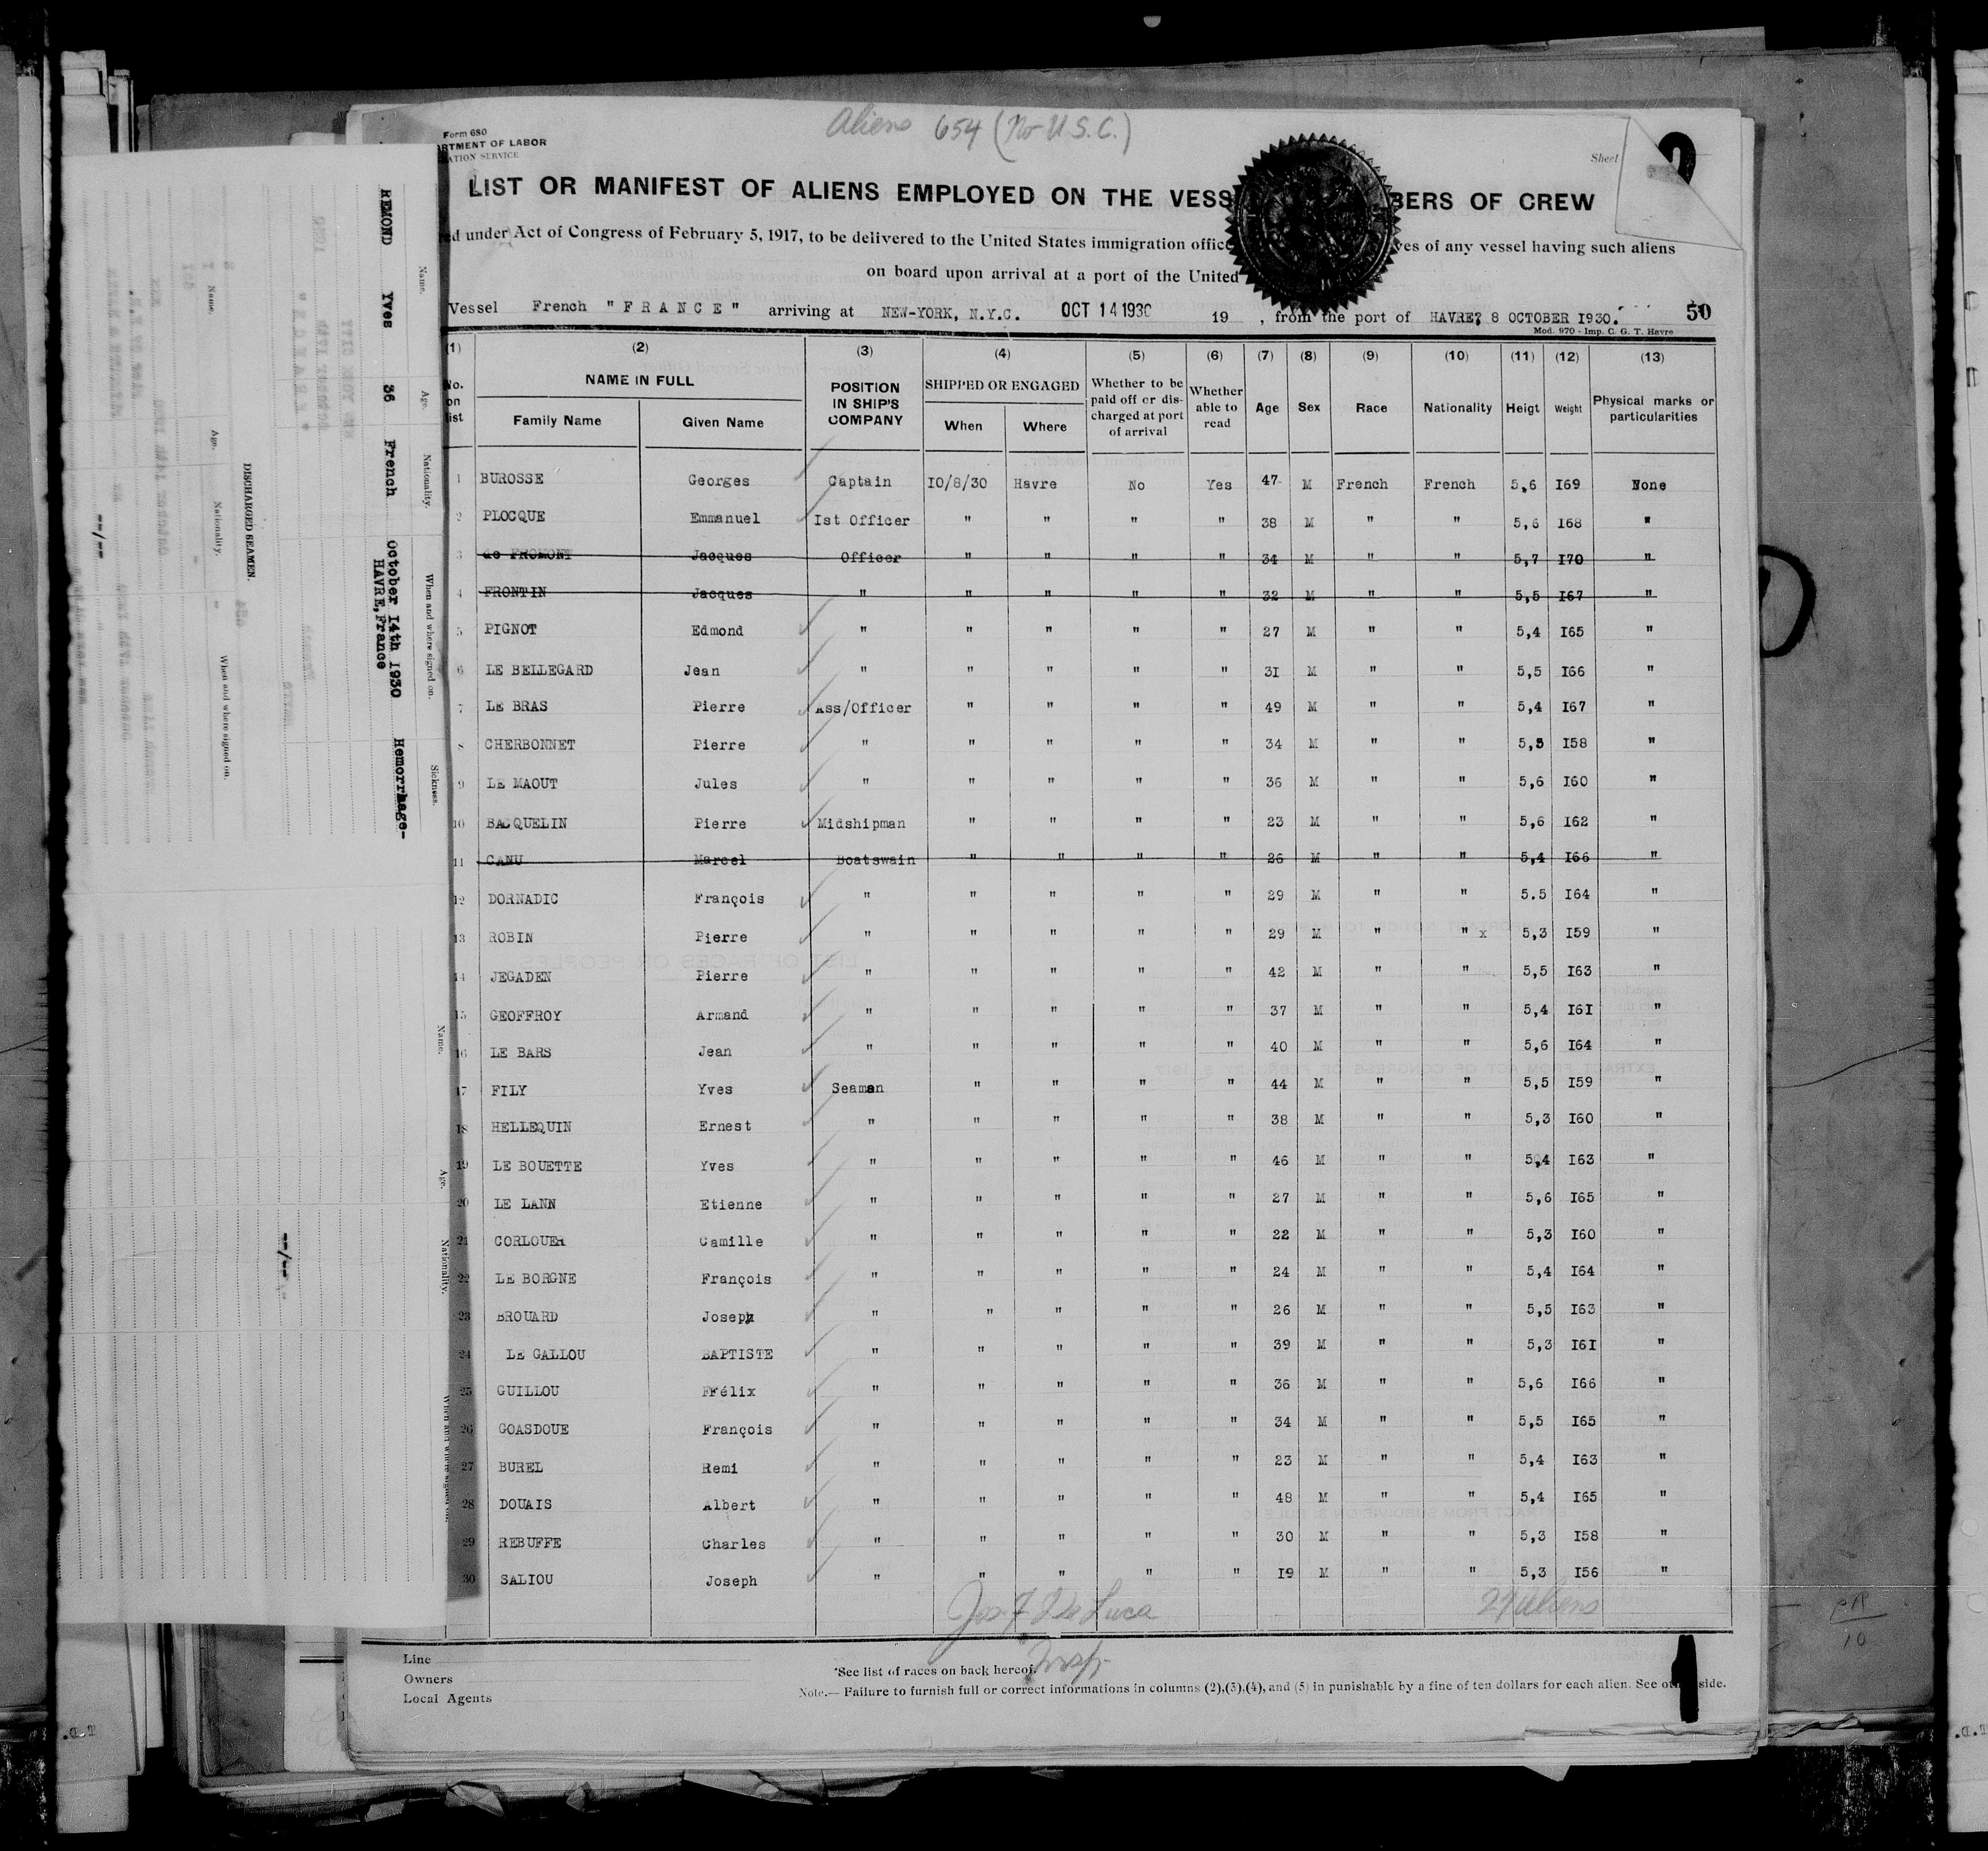 Aliens 654 (No U.S.C.)
Form 680
RTMENT OF LABOR
ATION SERVICE
Sheet
LIST OR MANIFEST OF ALIENS EMPLOYED ON THE VESS BERS OF CREW
ed under Act of Congress of February 5, 1917, to be delivered to the United States immigration office ves of any vessel having such aliens
on board upon arrival at a port of the United
Vessel French "FRANCE" arriving at NEW-YORK, N.Y.C. OCT 14 1930 19 , from the port of HAVRE? 8 OCTOBER I930. 50
Mod. 970 - Imp. C. G. T. Havre
(1) (2) (3) (4) (5) (6) (7) (8) (9) (10) (11) (12) (13)
No. on list NAME IN FULL Family Name Given Name POSITION IN SHIP'S COMPANY SHIPPED OR ENGAGED When Where Whether to be paid off or discharged at port of arrival Whether able to read Age Sex Race Nationality Heigt Weight Physical marks or particularities
1 BUROSSE Georges Captain I0/8/30 Havre No Yes 47 M French French 5,6 I69 None
2 PLOCQUE Emmanuel Ist Officer " " " " 38 M " " 5,6 I68 "
3 de FROMONT Jacques Officer " " " " 34 M " " 5,7 I70 "
4 FRONTIN Jacques " " " " " 32 M " " 5,5 I67 "
5 PIGNOT Edmond " " " " " 27 M " " 5,4 I65 "
6 LE BELLEGARD Jean " " " " " 3I M " " 5,5 I66 "
7 LE BRAS Pierre Ass/Officer " " " " 49 M " " 5,4 I67 "
8 CHERBONNET Pierre " " " " " 34 M " " 5,5 I58 "
9 LE MAOUT Jules " " " " " 36 M " " 5,6 I60 "
10 BACQUELIN Pierre Midshipman " " " " 23 M " " 5,6 I62 "
11 CANU Marcel Boatswain " " " " 26 M " " 5,4 I66 "
12 DORNADIC François " " " " " 29 M " " 5.5 I64 "
13 ROBIN Pierre " " " " " 29 M " " x 5,3 I59 "
14 JEGADEN Pierre " " " " " 42 M " " 5,5 I63 "
15 GEOFFROY Armand " " " " " 37 M " " 5,4 I6I "
16 LE BARS Jean " " " " " 40 M " " 5,6 I64 "
17 FILY Yves Seaman " " " " 44 M " " 5,5 I59 "
18 HELLEQUIN Ernest " " " " " 38 M " " 5,3 I60 "
19 LE BOUETTE Yves " " " " " 46 M " " 5,4 I63 "
20 LE LANN Etienne " " " " " 27 M " " 5,6 I65 "
21 CORLOUER Camille " " " " " 22 M " " 5,3 I60 "
22 LE BORGNE François " " " " " 24 M " " 5,4 I64 "
23 BROUARD Joseph " " " " " 26 M " " 5,5 I63 "
24 LE GALLOU BAPTISTE " " " " " 39 M " " 5,3 I6I "
25 GUILLOU FFélix " " " " " 36 M " " 5,6 I66 "
26 GOASDOUE François " " " " " 34 M " " 5,5 I65 "
27 BUREL Remi " " " " " 23 M " " 5,4 I63 "
28 DOUAIS Albert " " " " " 48 M " " 5,4 I65 "
29 REBUFFE Charles " " " " " 30 M " " 5,3 I58 "
30 SALIOU Joseph " " " " " I9 M " " 5,3 I56 "
Jos. F. De Luca
Insp.
27 aliens
Line
Owners
Local Agents
*See list of races on back hereof.
Note.— Failure to furnish full or correct informations in columns (2),(3),(4), and (5) in punishable by a fine of ten dollars for each alien. See oth side.
Name. Age. Nationality. When and where signed on. Sickness.
REMOND Yves 36 French October I4th I930 Hemorrhage-
HAVRE,France
DISCHARGED SEAMEN.
Name. Age. Nationality. When and where signed on.
--/--
--/--
Name. Age. Nationality. When and where signed on.
T.D.